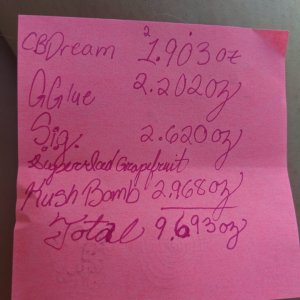 CBDream 1.903oz
GGlue 2.202oz
S.g. 2.620oz
Superskad Grapefruit
Kush Bomb 2.968oz
Total 9.693oz